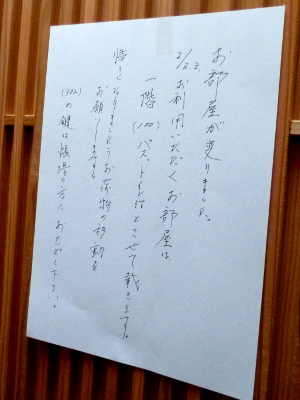 お部屋が変りました。
2/2.3. お利用いただくお部屋は
一階 (100) バス、トイレ付とさせて戴きます。
になりましたらお荷物の移動を
お願いします。
(302)の鍵は帳場の方におもどし下さい。